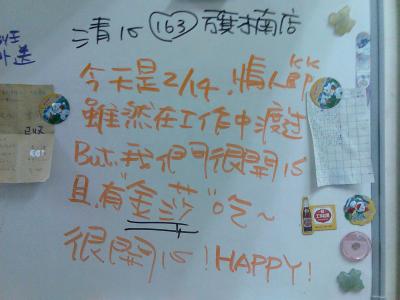 清心 163 萬楠店
外送
今天是2/14,情人節
雖然在工作中渡過
But 我們很開心
且有"金莎"吃~
很開心!HAPPY!